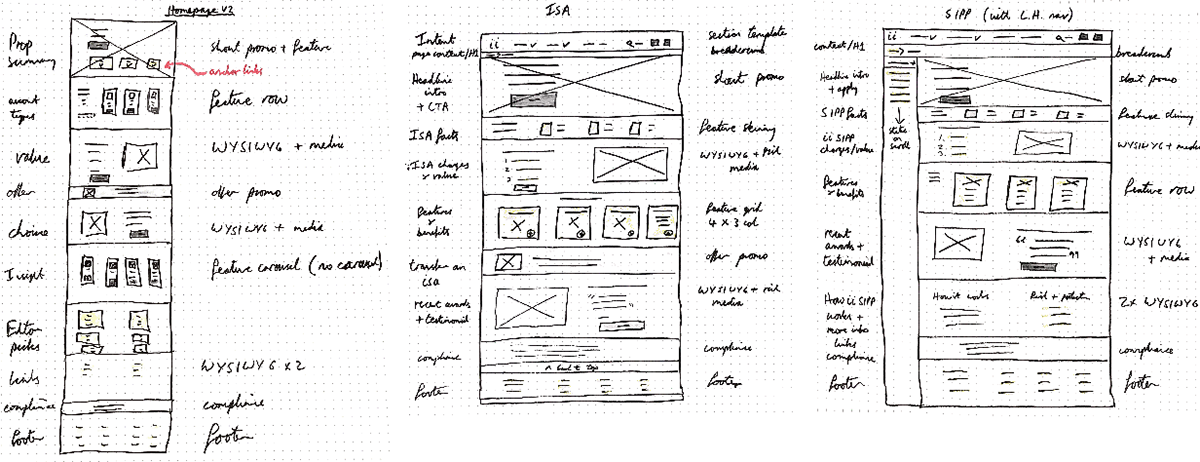 Homepage V2
Prop
summary
short promo + feature
anchor links
types
feature row
value
WYSIWYG + media
offer
offer promo
choice
WYSIWYG + media
Insight
feature carousel (no carousel)
Editor
picks
links
WYSIWYG x 2
compliance
compliance
footer
footer
ISA
Intent
page content/H1
ii
section template
breadcrumb
Headline
intro
+ CTA
short promo
ISA facts
feature
ISA charges
& value
1
2
3
WYSIWYG +
media
features
&
benefits
feature grid
4 x 3 col
transfer an
isa
offer promo
recent awards
+ testimonial
WYSIWYG +
media
compliance
compliance
^ back to top
footer
footer
SIPP (with L.H. nav)
content/H1
ii
breadcrumb
Headline intro
+ apply
short promo
SIPP facts
sticks
on
scroll
feature
ii SIPP
charges/value
1.
2.
3.
WYSIWYG + media
features
& benefits
feature row
recent
awards +
testimonial
WYSIWYG
+ media
How ii SIPP
works +
more info
links
How it works
Risk + protection
2x WYSIWYG
compliance
compliance
footer
footer